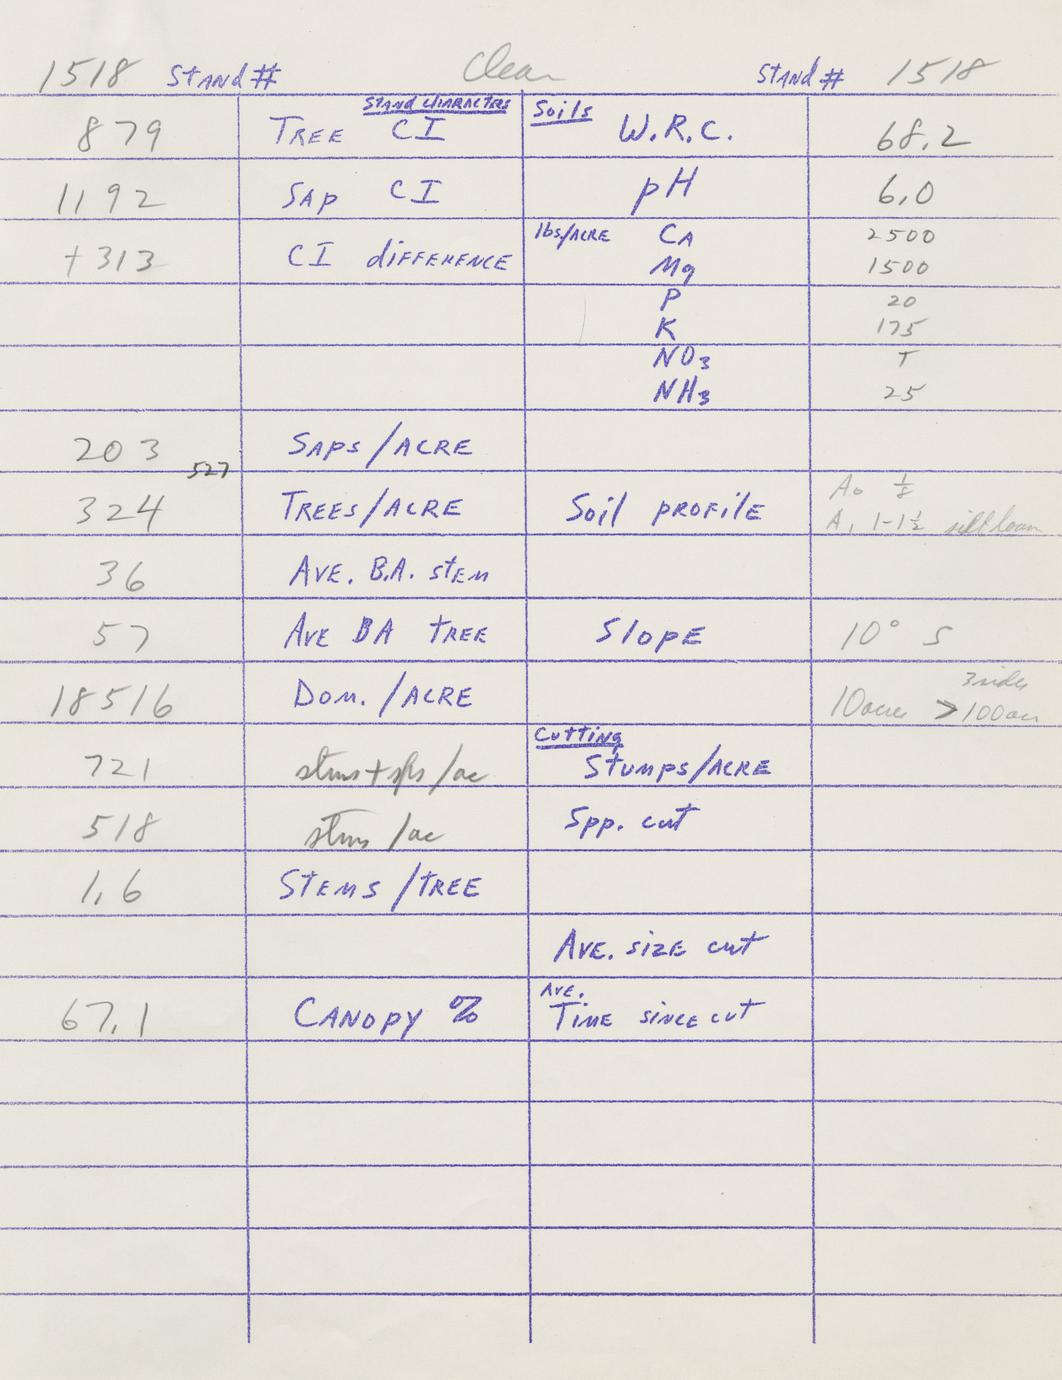 1518 Stand # Clear Stand # 1518
Stand Characters Soils
879 Tree CI W.R.C. 68.2
1192 Sap CI pH 6.0
lbs/Acre Ca 2500
+313 CI difference Mg 1500
P 20
K 175
NO3 T
NH3 25
203 Saps/Acre
527
324 Trees/Acre Soil profile A0 1/8
A1 1-1½ silt loam
36 Ave. B.A. stem
57 Ave BA tree Slope 10° S
3 sides
18516 Dom. /Acre 10 acres > 100 ac
Cutting
721 stms + sps /ac Stumps/Acre
518 stms /ac Spp. cut
1.6 Stems /tree
Ave. size cut
Ave.
67.1 Canopy % Time since cut